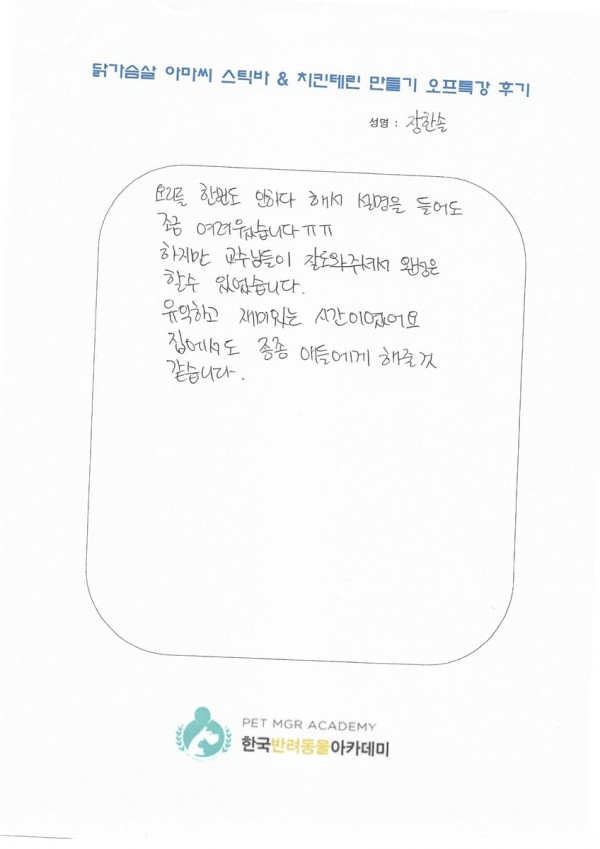 닭가슴살 아마씨 스틱바 & 치킨테린 만들기 오프특강 후기
성명 : 장한솔
요리를 한번도 안하다 해서 설명을 들어도
조금 어려웠습니다ㅠㅠ
하지만 교수님들이 잘도와주셔서 완성은
할수 있었습니다.
유익하고 재미있는 시간이였어요
집에서도 종종 애들에게 해줄것
같습니다.
PET MGR ACADEMY
한국반려동물아카데미